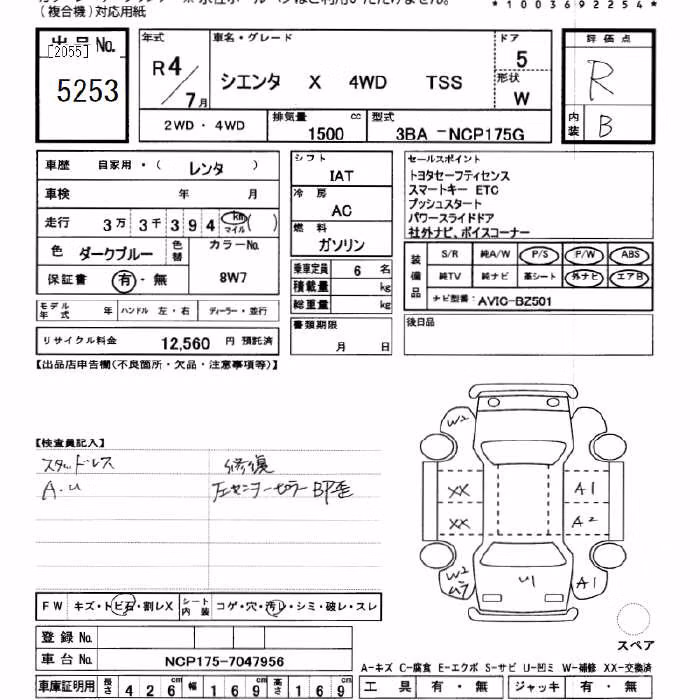 (複合機)対応用紙
*1003692254*
出品No.
[2055]
5253
年式
R4/7月
車名・グレード
シエンタ X 4WD TSS
ドア
5
形状
W
評価点
R
内装
B
2WD・4WD
排気量
1500 cc
型式
3BA-NCP175G
車歴 自家用・( レンタ )
車検 年 月
走行 3万 3千 3 9 4 km マイル ( )
色 ダークブルー 色替
カラーNo.
8W7
保証書 有・無
モデル年式 年 ハンドル 左・右 ディーラー・並行
リサイクル料金 12,560 円 預託済
シフト
IAT
冷房
AC
燃料
ガソリン
乗車定員 6 名
積載量 kg
総重量 kg
書類期限
月 日
セールスポイント
トヨタセーフティセンス
スマートキー ETC
プッシュスタート
パワースライドドア
社外ナビ、ボイスコーナー
装備品
S/R 純A/W P/S P/W ABS
純TV 純ナビ 革シート 外ナビ エアB
ナビ型番: AVIC-BZ501
後日品
【出品店申告欄(不良箇所・欠品・注意事項等)】
【検査員記入】
スタッドレス
A.U
修復
左センターピラー部歪
W2
XX A1
XX A2
W2
W7
U1
A1
FW キズ・トビ石・割レX
シート内装 コゲ・穴・汚レ・シミ・破レ・スレ
登録No.
車台No. NCP175-7047956
スペア
A-キズ C-腐食 E-エクボ S-サビ U-凹ミ W-補修 XX-交換済
車庫証明用 長さ 426cm 幅 169cm 高さ 169cm
工具 有・無 ジャッキ 有・無